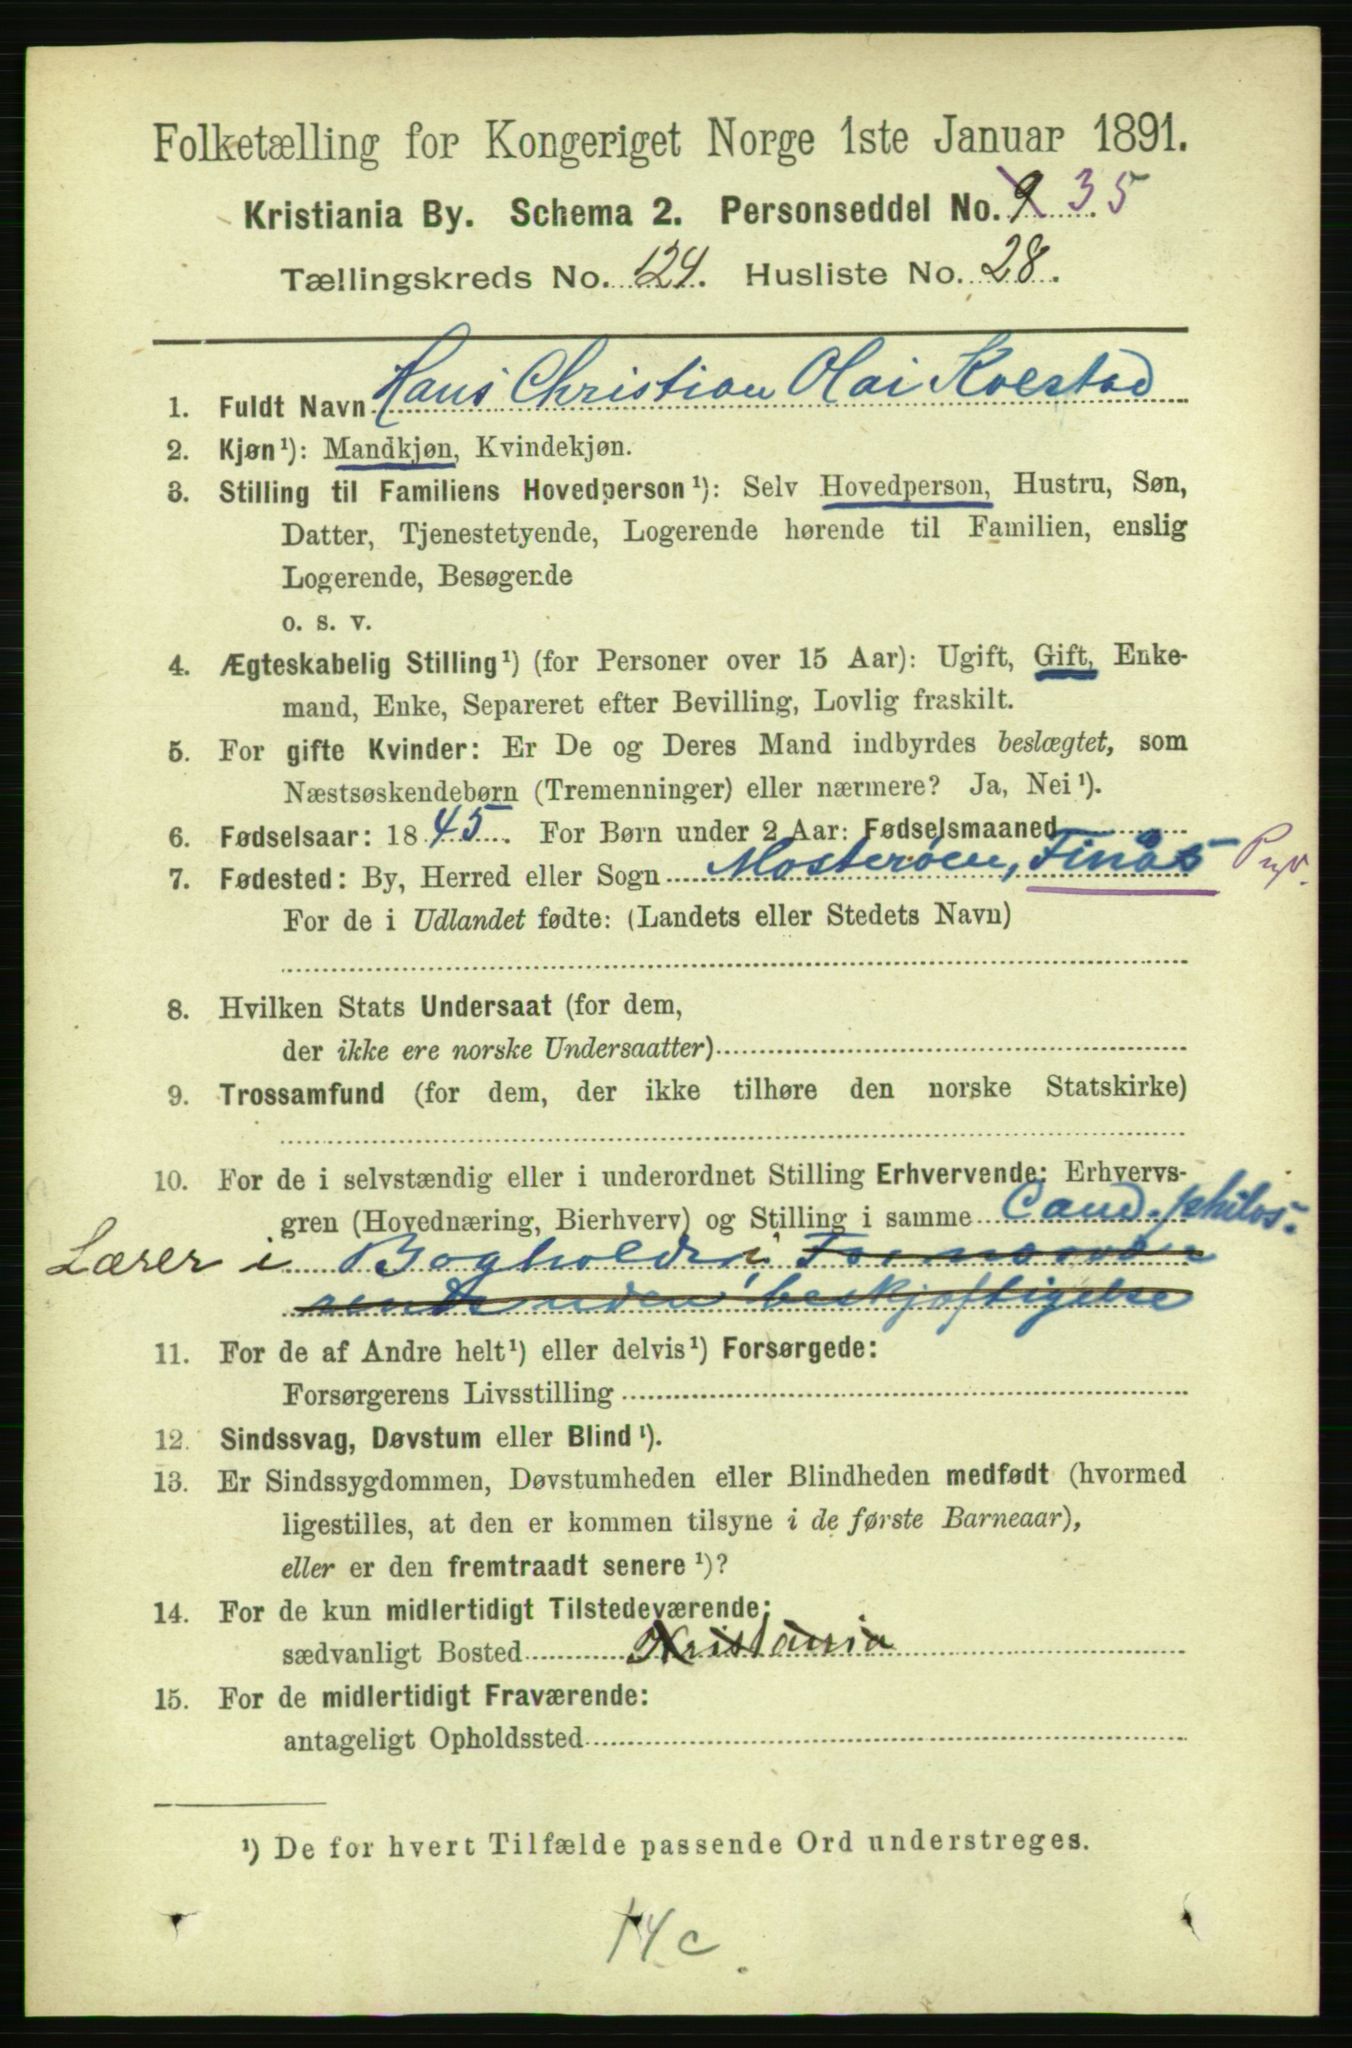 Folketælling for Kongeriget Norge 1ste Januar 1891.
Kristiania By. Schema 2. Personseddel No. 9 35
Tællingskreds No. 124. Husliste No. 28.
1. Fuldt Navn Hans Christian Olai Kvestad
2. Kjøn¹): Mandkjøn, Kvindekjøn.
3. Stilling til Familiens Hovedperson¹): Selv Hovedperson, Hustru, Søn,
Datter, Tjenestetyende, Logerende hørende til Familien, enslig
Logerende, Besøgende
o. s. v.
4. Ægteskabelig Stilling¹) (for Personer over 15 Aar): Ugift, Gift, Enke-
mand, Enke, Separeret efter Bevilling, Lovlig fraskilt.
5. For gifte Kvinder: Er De og Deres Mand indbyrdes beslægtet, som
Næstsøskendebørn (Tremenninger) eller nærmere? Ja, Nei¹).
6. Fødselsaar: 1845. For Børn under 2 Aar: Fødselsmaaned
7. Fødested: By, Herred eller Sogn Mosterøen, Finås
For de i Udlandet fødte: (Landets eller Stedets Navn)
8. Hvilken Stats Undersaat (for dem,
der ikke ere norske Undersaatter)
9. Trossamfund (for dem, der ikke tilhøre den norske Statskirke)
10. For de i selvstændig eller i underordnet Stilling Erhvervende: Erhvervs-
gren (Hovednæring, Bierhverv) og Stilling i samme Cand. philos.
Lærer i Bogholdri
uden beskjæftigelse
11. For de af Andre helt¹) eller delvis¹) Forsørgede:
Forsørgerens Livsstilling
12. Sindssvag, Døvstum eller Blind¹).
13. Er Sindssygdommen, Døvstumheden eller Blindheden medfødt (hvormed
ligestilles, at den er kommen tilsyne i de første Barneaar),
eller er den fremtraadt senere¹)?
14. For de kun midlertidigt Tilstedeværende:
sædvanligt Bosted Kristania
15. For de midlertidigt Fraværende:
antageligt Opholdssted
¹) De for hvert Tilfælde passende Ord understreges.
14 c.